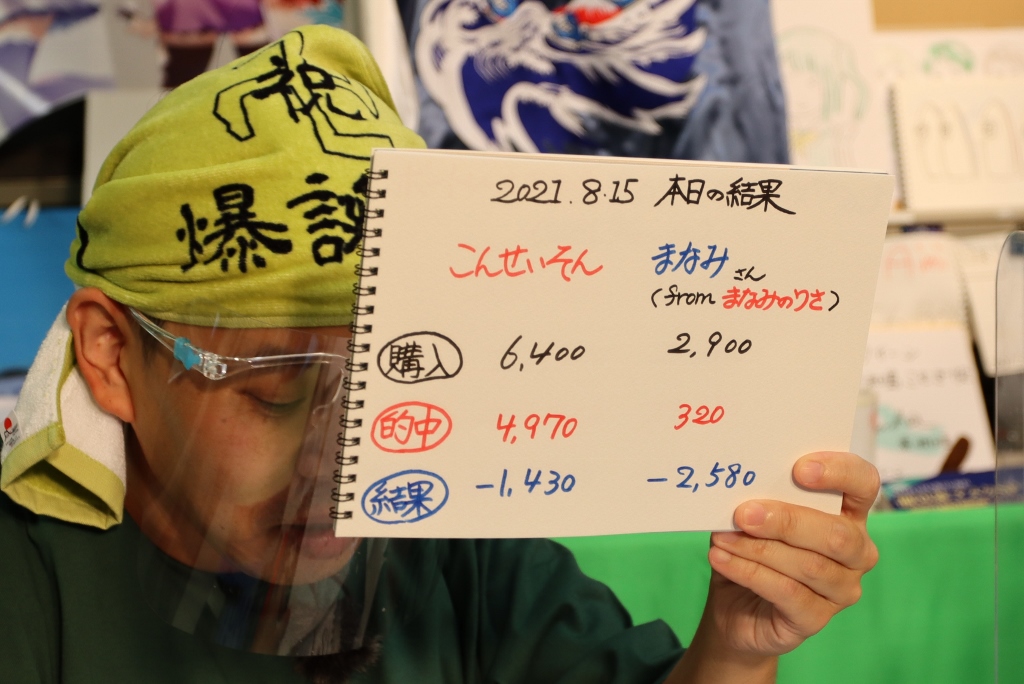 祝
爆誕
2021.8.15 本日の結果
こんせいそん まなみさん
(from まなみのりさ)
購入 6,400 2,900
的中 4,970 320
結果 -1,430 -2,580